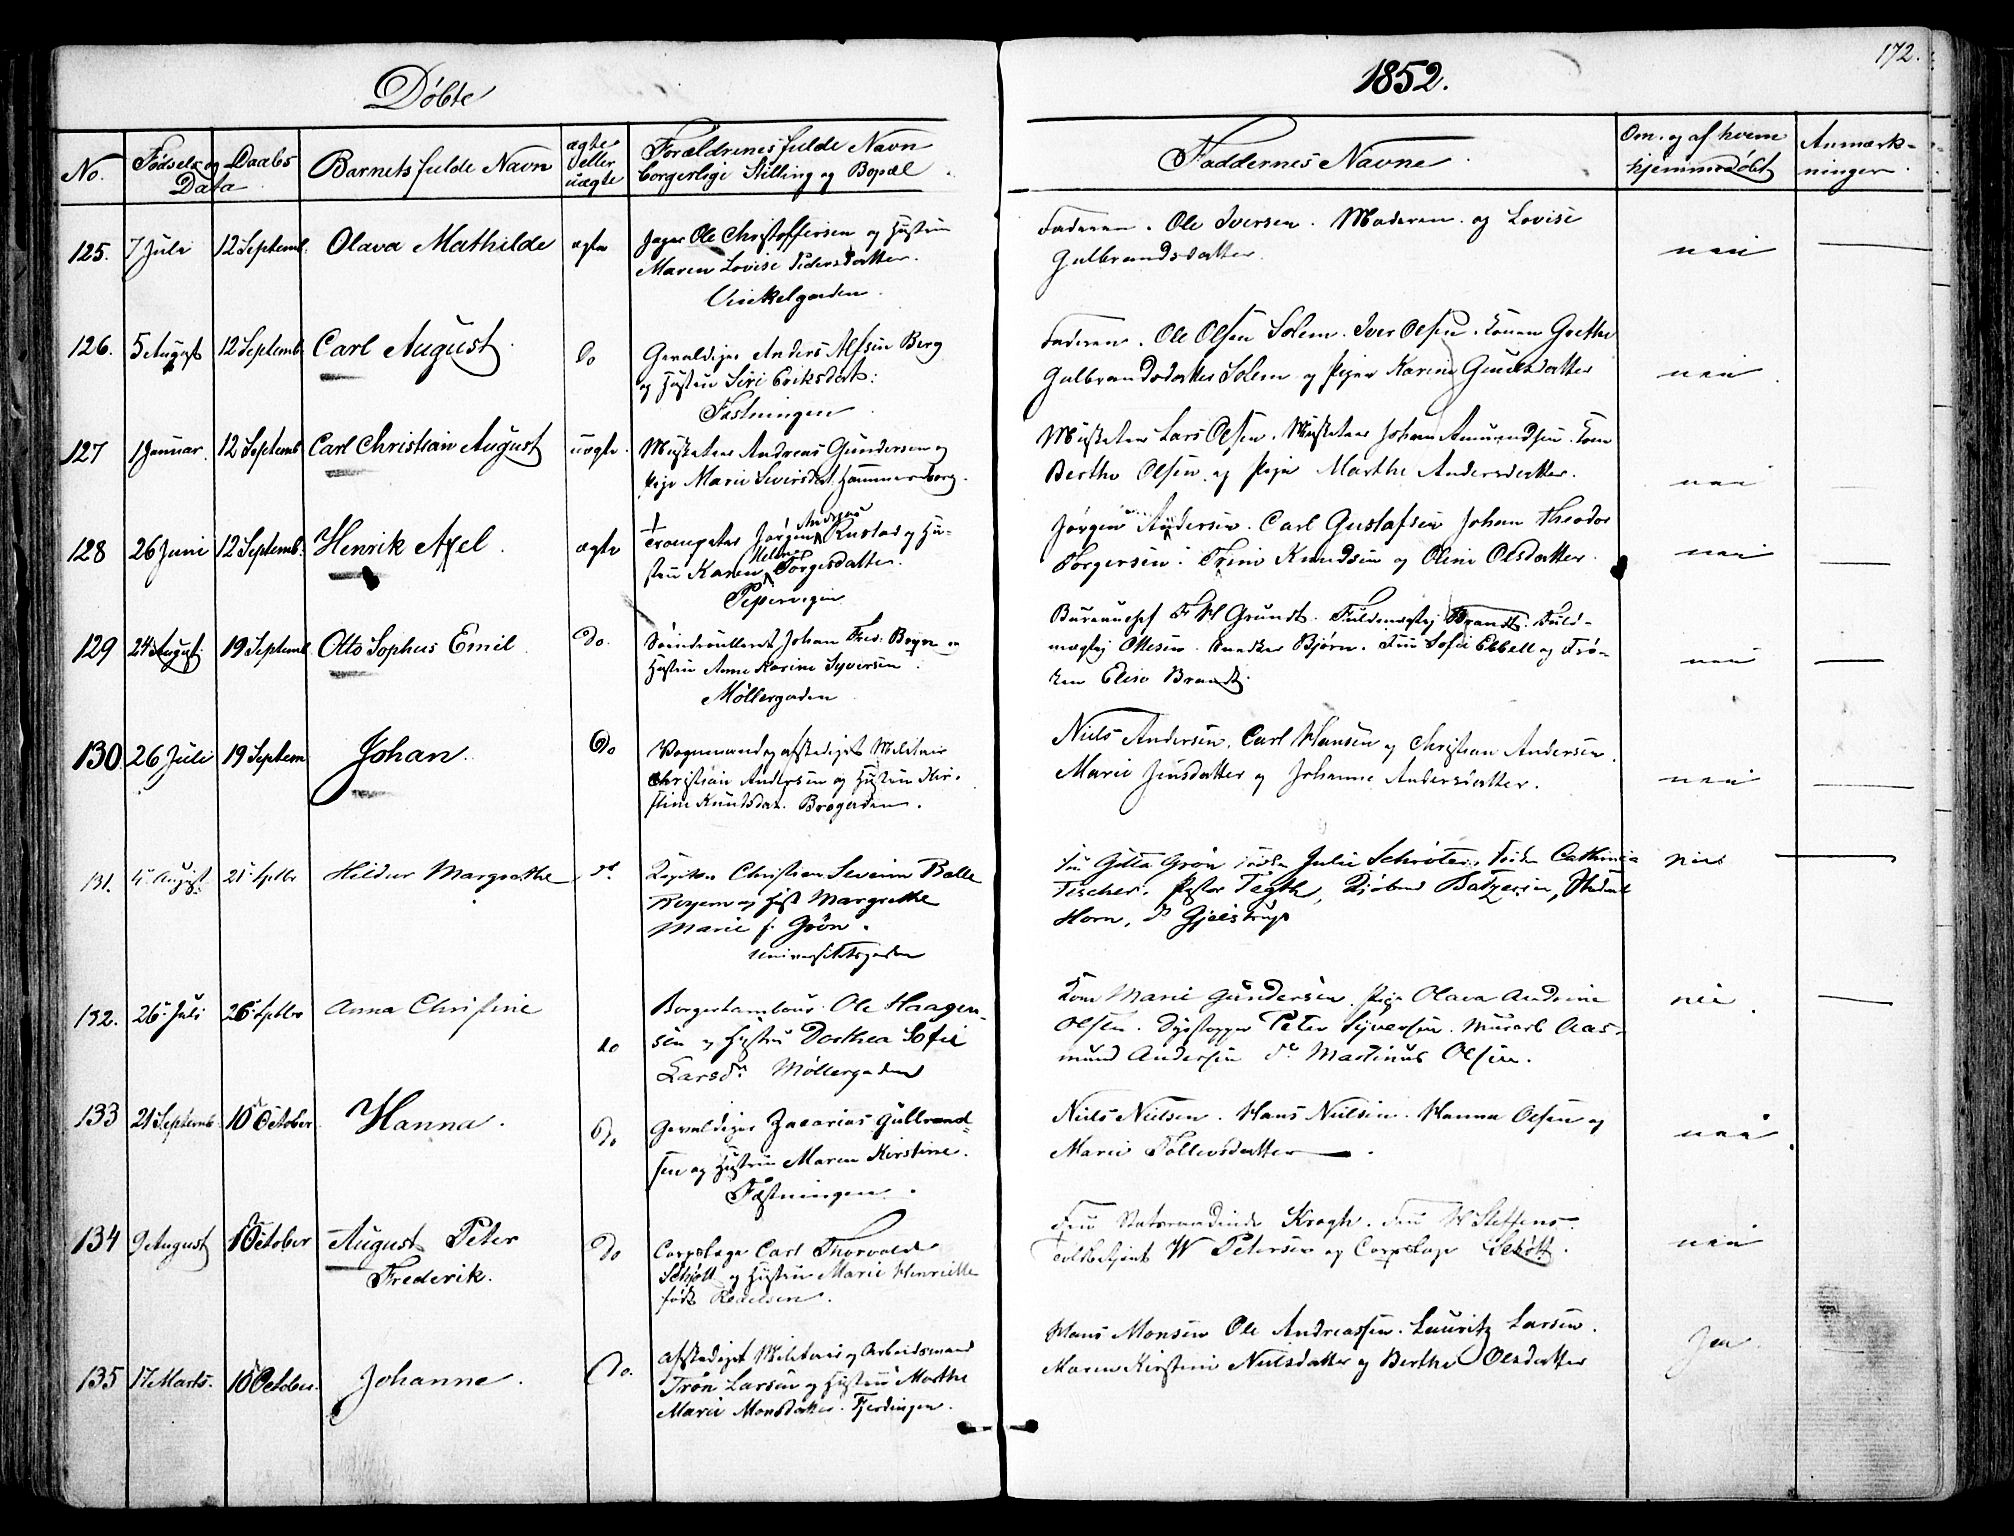 172.
Døbte
1852.
No.
Fødsels og Daabs
Data
Barnets fulde Navn
ægte
eller
uægte
Forældrenes fulde Navn
borgerlige Stilling og Bopæl
Faddernes Navne
Om og af hvem
hjemmedøbt
Anmærk-
ninger.
125. 7 Juli 12 Septemb. Olava Mathilde ægte
Jæger Ole Christoffersen og Hustru
Maren Lovise Pedersdatter.
Vinkelgaden.
Faderen. Ole Iversen. Moderen og Lovise
Gulbrandsdatter.
nei
126. 5 August 12 Septemb. Carl August Do
Gevaldiger Anders Alfsen Berg
og Hustru Siri Eriksdat:
Fæstningen
Faderen. Ole Olsen Solem. Iver Olsen. Konen Grethe
Gulbrandsdatter Solem og Pigen Karine
nei
127 1 Januar. 12 Septemb Carl Christian August uægte.
Musketeer Andreas Gundersen og
Pige Marie Siversdat. Hammersborg.
Musketeer Lars Olsen. Musketeer Johan Amundsen. Kone
Berthe Olsen og Pige Marthe Andersdatter.
nei
128 26 Juni 12 Septemb. Henrik Axel. ægte
Andreas
Trompeter Jørgen Rustad og Hu-
Helene
stru Karen Torgersdatter.
Pipervigen
Jørgen Andersen. Carl Gustafsen Johan Theodor
Torgersen. Trine Knudsen og Oline Olsdatter.
nei
129 24 August. 19 Septemb Otto Sophus Emil Do.
Johan Fred. Boyn og
Hustru Anne Karine Syversen.
Møllergaden
Bureauchef F H Grundt. Fuldmægtig Brandt. Fuld-
mægtig Ottesen. Bjørn. Fru Sofie Ebbell og Frø-
ken Elise Brandt.
nei
130 26 Juli 19 Septem Johan. Do
Vognmand og afskediget Militair
Christian Andersen og Hustru Kir-
stine Knudsdat. Brogaden.
Niels Andersen. Carl Hansen og Christian Andersen.
Marie Jensdatter og Johanne Andersdatter.
nei
131. 4 August 21 Septbr Hildur Margrethe do
Christian Severin Balle
og Hust Margrethe
Marie f. Grøn.
Universitetsgaden
Fru Gitta Grøn Frøken Julie Schrøter, Frøken Cathinca
Fischer. Pastor Tegth, Kjøbmd Student
Horn, do
nei
132. 26 Juli 26 Septbr Anna Christine do
Borgertambour Ole Haagen-
sen og Hustru Dorthea Sofie
Larsdr. Møllergaden
Kone Marie Gundersen. Pige Olava Andrine
Olsen. Peter Syversen. Murarb Aas-
mund Andersen do Martinus Olsen.
nei
133 21 Septemb. 10 October Hanna. Do
Gevaldiger Zacarias Gulbrand-
sen og Hustru Maren Kirstine.
Fæstningen.
Niels Nielsen. Hans Nielsen. Hanna Olsen og
Marie Tollevsdatter
nei
134 9 August 10 October August Peter
Frederik.
Do
Corpslæge Carl Thorvald
Schjøtt og Hustru Marie Henriette
født
Fru Statsraadinde Krogh. Fru W Steffens.
Toldbetjent W Petersen og Corpslæge Schøtt.
nei
135 17 Marts. 10 October. Johanne. Do.
Afskediget Militair og Arbeidsmand
Trøn Larsen og Hustru Marthe
Marie Monsdatter. Fjerdingen.
Hans Monsen Ole Andreassen. Lauritz Larsen.
Maren Kirstine Nielsdatter og Berthe Olsdatter
Ja.